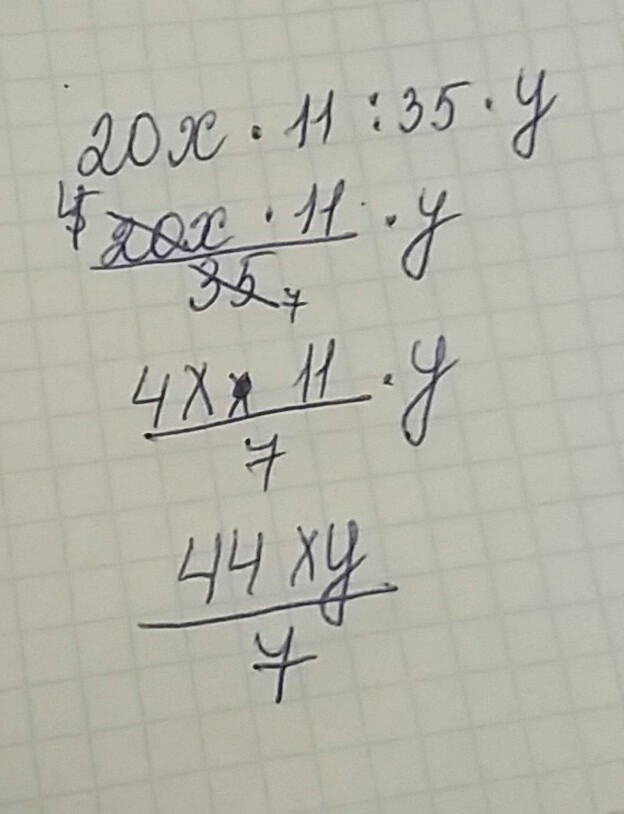 20x · 11 : 35 · y
4 20x · 11 · y
35 7
4x · 11 · y
7
44xy
7